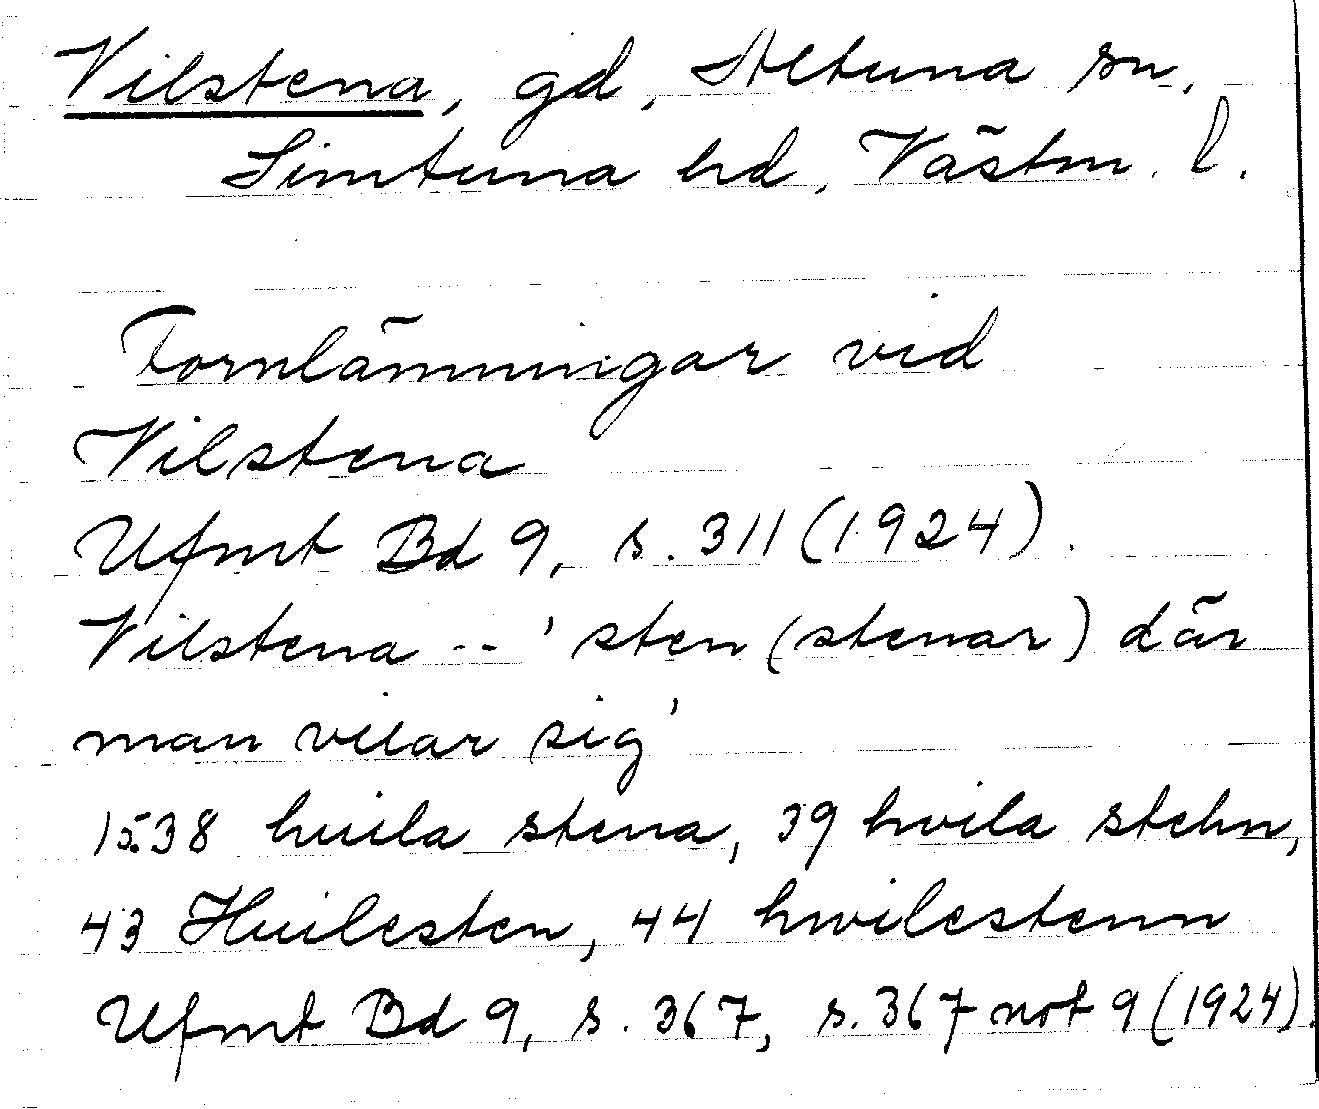 Vilstena, gd, Altuna sn,
Simtuna hd, Västm. l.
Fornlämningar vid
Vilstena
Ufmt Bd 9, s. 311 (1924).
Vilstena -- 'sten (stenar) där
man vilar sig'
1538 huila stena, 39 hvila stehn,
43 Huilesten, 44 hwilestenn
Ufmt Bd 9, s. 367, s. 367 not 9 (1924).